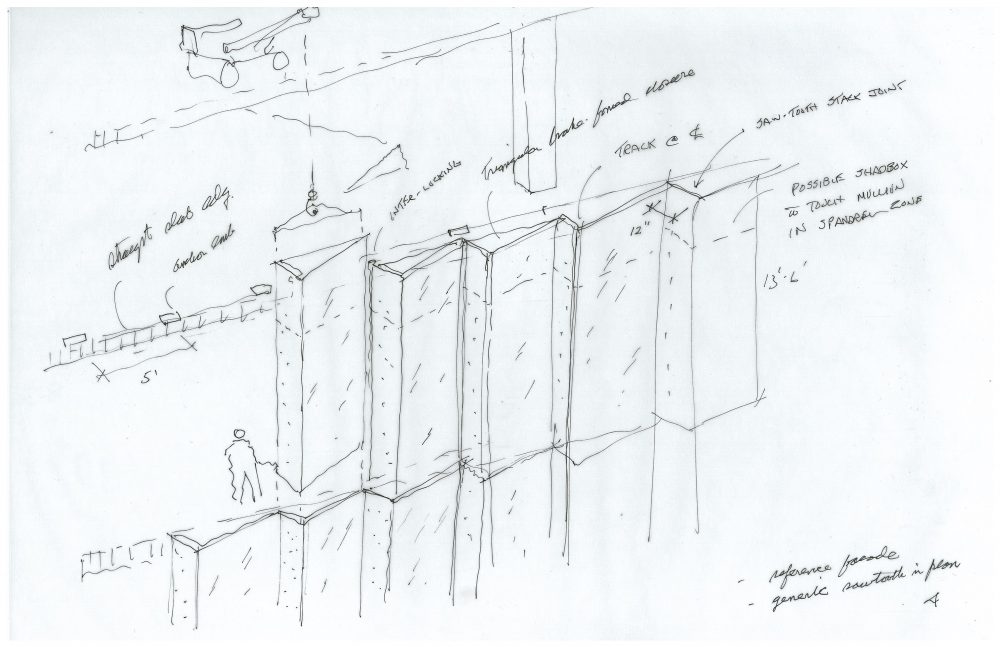 triangular brake-formed closure
SAW-TOOTH STACK JOINT
TRACK @ ℄
INTER-LOCKING
POSSIBLE SHADBOX
TOUCH MULLION
IN SPANDREL ZONE
straight slab edg.
anchor emb
12"
13'-6'
5'
- reference facade
- generic sawtooth in plan
4